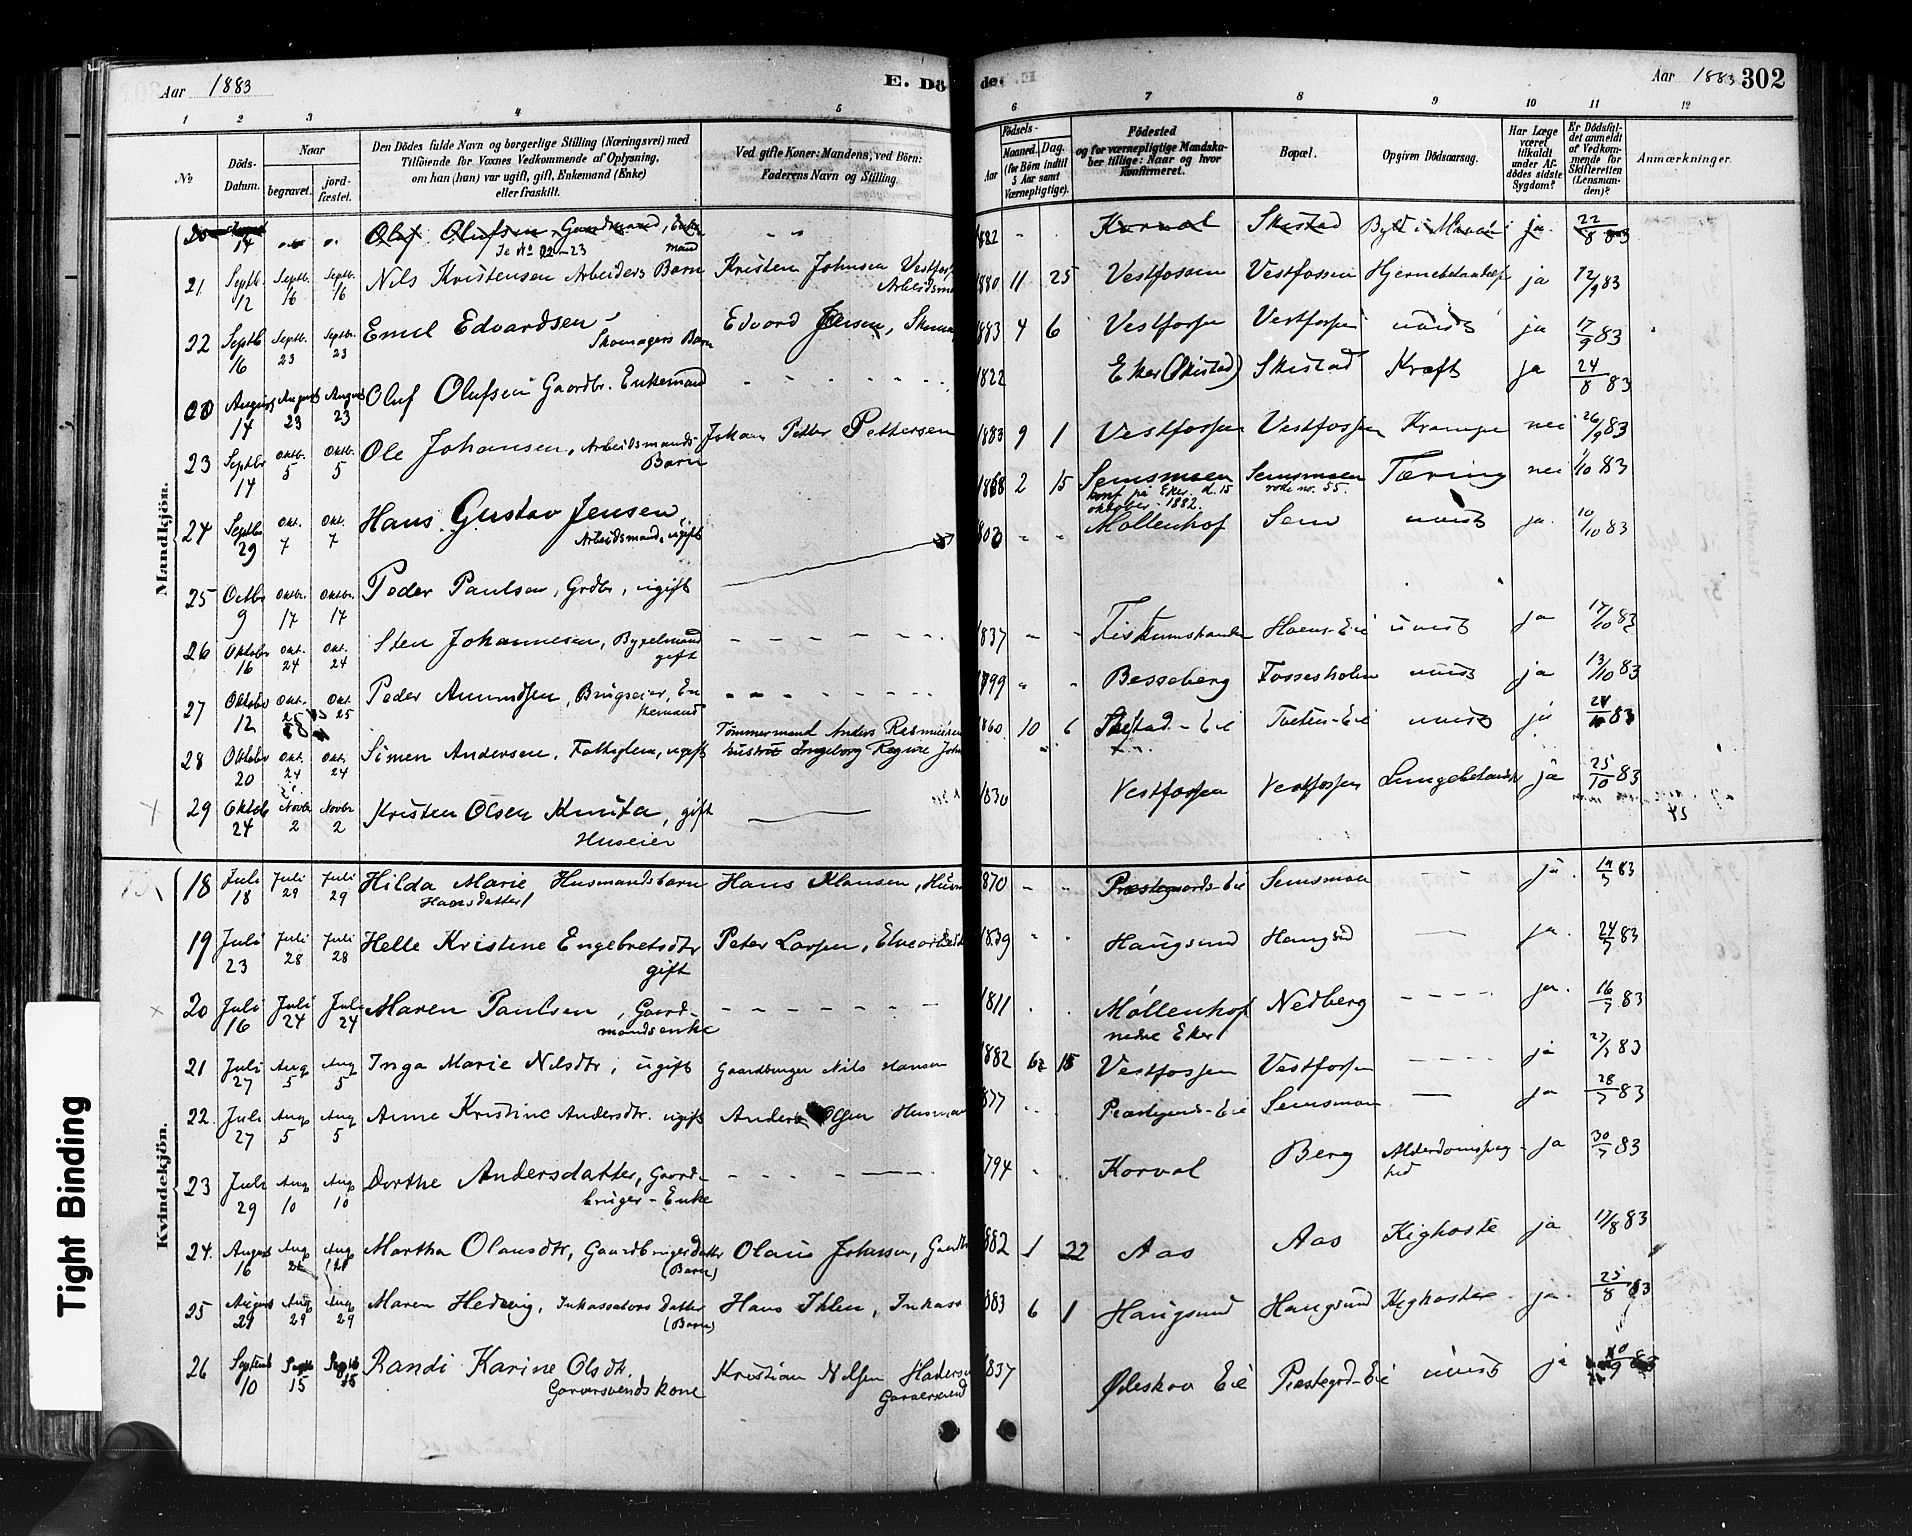 Aar 1883
E. Dö
de.
Aar 1883 302
1 2 3 4 5 6 7 8 9 10 11 12
№
Döds-Datum.
Naar
begravet.
jord-fæstet.
Den Dödes fulde Navn og borgerlige Stilling (Næringsvei) med
Tilföiende for Voxnes Vedkommende af Oplysning,
om han (hun) var ugift, gift, Enkemand (Enke)
eller fraskilt.
Ved gifte Koner: Mandens, ved Börn:
Faderens Navn og Stilling.
Födsels-
Aar
Maaned. Dag.
(for Börn indtil
5 Aar samt
Værnepligtige).
Födested
og for værnepligtige Mandska-
ber tillige: Naar og hvor
konfirmeret.
Bopæl.
Opgiven Dödsaarsag.
Har Læge
været
tilkaldt
under Af-
dödes sidste
Sygdom?
Er Dödsfal-
det anmeldt
af Vedkom-
mende for
Skifteretten
(Lensman-
den)?
Anmærkninger.
Mandkjön.
14 Oluf Olufsen Gaardmand, Enkemand 1882 Korvol Skistad ja 22/8 83
21 Septb. 12 Septb. 16 Septb. 16 Nils Kristensen Arbeiders Barn Kristen Johnsen Vestfos Arbeidsm 1880 11 25 Vestfossen Vestfossen ja 12/9 83
22 Septb 16 Septb. 23 Septbr. 23 Emil Edvardsen Skomagers Barn Edvard Jensen, Skom 1883 4 6 Vestfossen Vestfossen uvist ja 17/9 83
20 August 14 August 23 August 23 Oluf Olufsen Gaardbr. Enkemand 1822 Eker (Skistad) Skistad Kræft ja 24/8 83
23 Septbr 14 Oktb. 5 Oktb. 5 Ole Johansen, Arbeidsmands Barn Johan Petter Pettersen 1883 9 1 Vestfossen Vestfossen Krampe nei 26/9 83
24 Septbr 29 Okt. 7 Okt. 7 Hans Gustav Jensen Arbeidsmand, ugift 1868 2 15 Semsmoen konf. på Eker. d. 15 oktober 1882. Semsmoen rode no. 55. Tæring nei 1/10 83
25 Octbr 9 Oktbr. 17 Oktbr. 17 Peder Paulsen, Grdbr, ugift Møllenhof Sem uvist ja. 10/10 83
26 Oktober 16 Okt. 24 Okt. 24 Sten Johannesen, Bygselmand gift 1837 Hoens-Eie uvist ja 17/10 83
27 Oktober 12 Okt. Okt. 25 Peder Amundsen, Brugseier, Enkemand 1799 Besseberg Fossesholm uvist ja 13/10 83
28 Oktober 20 Okt. 24 Okt. 24 Simen Andersen, Fattiglem, ugift Tømmermand Anders Rasmussen hustru Ingeborg Regine Joh 1860 10 6 uvist ja 83
29 Oktob 24 Novbr 2 Novbr 2 Kristen Olsen Knuta, gift Huseier 1830 Vestfossen Vestfossen Lungebetændelse ja 25/10 83
Kvindekjön.
18 Juli 18 Juli 29 Juli 29 Hilda Marie Hansdatter, Husmandsbarn Hans Klausen, Husm 1870 Præstegaards-Eie Semsmoen ja. 83
19 Juli 23 Juli 28 Juli 28 Helle Kristine Engebretsdtr gift Peter Larsen, 1839 Haugsund Haugsund ja. 24/7 83
20 Juli 16 Juli 24 Juli 24 Maren Paulsen, Gaardmandsenke 1811 Møllenhof nedre Eker Nedberg ja. 16/7 83
21 Juli 27 Aug 5 Aug 5 Inga Marie Nilsdtr, ugift Gaardbruger Nils Hansen 1882 15 Vestfossen Vestfossen ja 27/7 83
22. Juli 27 Aug 5 Aug 5 Anne Kristine Andersdtr. ugift Anders Olsen Husman 1877 Præstegards-Eie Semsmoen ja 28/7 83
23 Juli 29 Aug 10 Aug 10 Dorthe Andersdatter, Gaardbruger-Enke 1794 Korvol Berg Alderdomssvaghed ja 30/7 83
24. August 16 Aug Aug Martha Olausdtr, Gaardbrugerdatter (Barn) Olaus Johnsen, Gaardbr 1882 1 22 Aas Aas Kighoste ja 17/8 83
25 August 21 Aug 29 Aug 29 Maren Hedvig, Inkassators datter (Barn) Hans Ihlen, Inkass 1883 6 1 Haugsund Haugsund Kighoste ja 25/8 83
26 Septemb 10 Septb 15 Septb 15 Randi Karine Olsdtr. Garversvends kone Kristian Nilsen Garversvend 1837 Ødeskov Eie Præstegrd-Eie uvist ja
Tight Binding